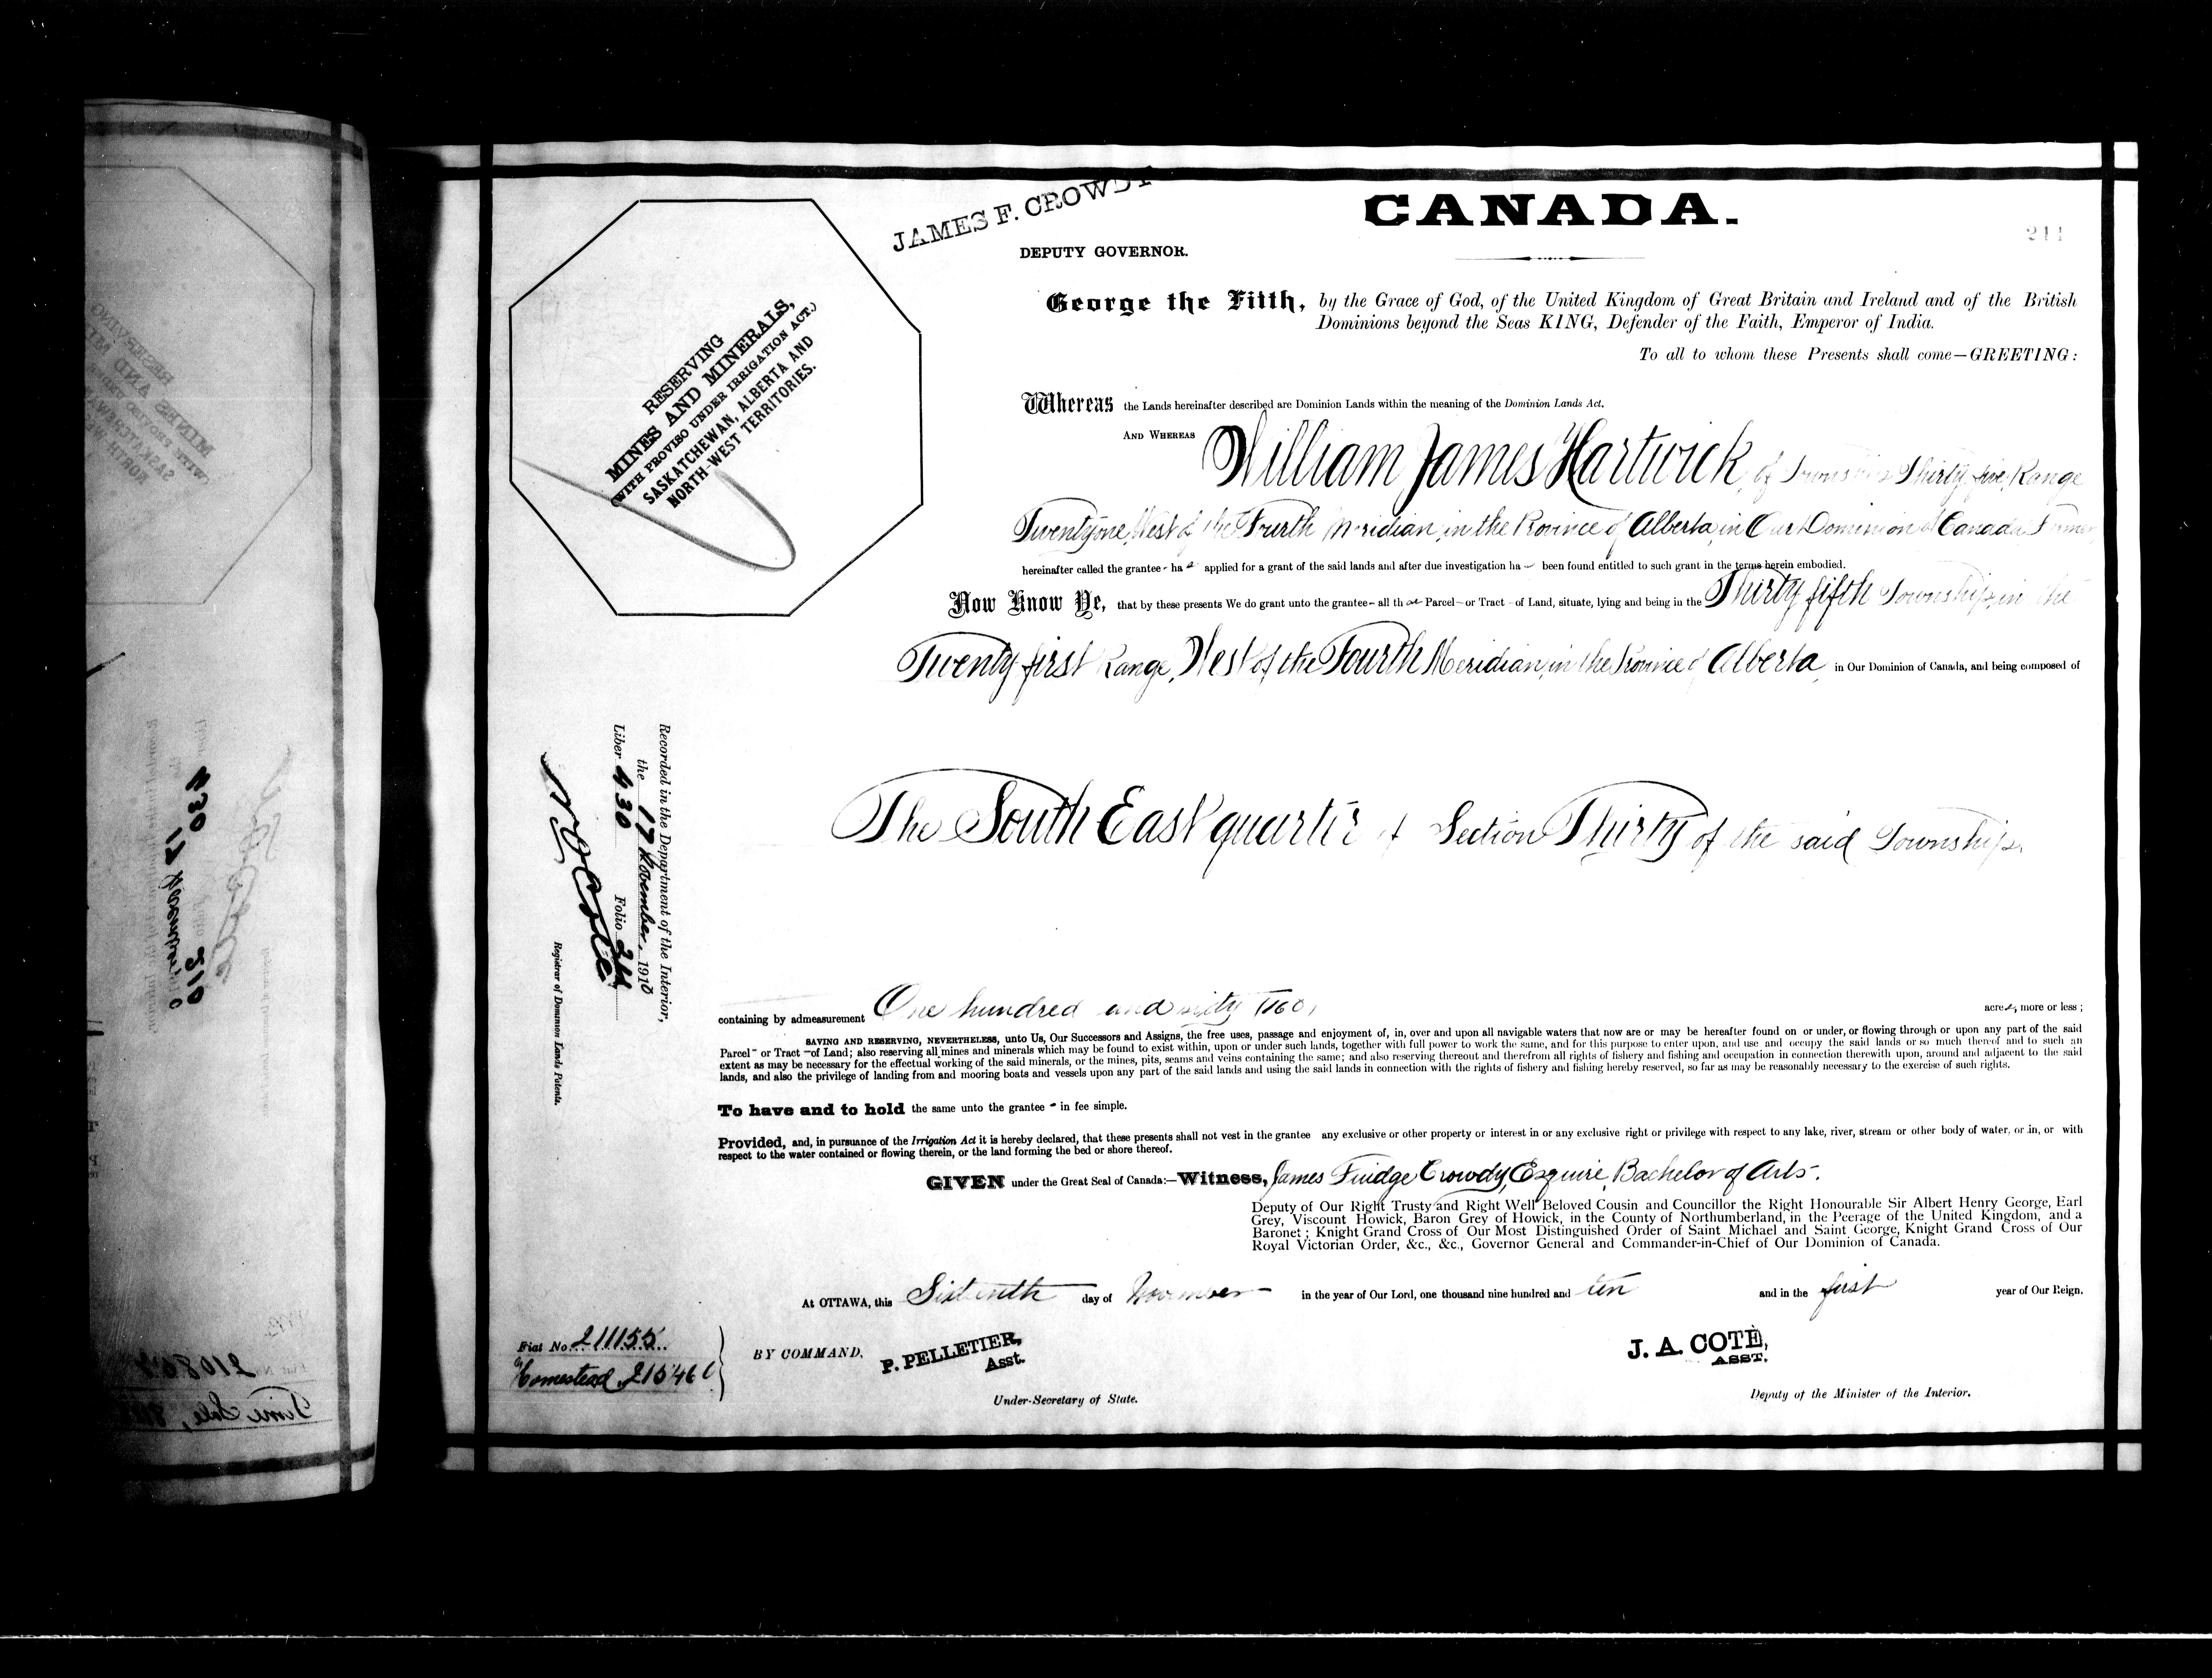 CANADA.
JAMES F. CROWDY
DEPUTY GOVERNOR.
211
George the Fifth, by the Grace of God, of the United Kingdom of Great Britain and Ireland and of the British
Dominions beyond the Seas KING, Defender of the Faith, Emperor of India.
To all to whom these Presents shall come—GREETING:
RESERVING
MINES AND MINERALS,
(WITH PROVISO UNDER IRRIGATION ACT.)
SASKATCHEWAN, ALBERTA AND
NORTH-WEST TERRITORIES.
Whereas the Lands hereinafter described are Dominion Lands within the meaning of the Dominion Lands Act.
AND WHEREAS William James Hartwick, of Township Thirty five, Range
Twenty one, West of the Fourth Meridian, in the Province of Alberta, in Our Dominion of Canada, Farmer,
hereinafter called the grantee - has applied for a grant of the said lands and after due investigation ha – been found entitled to such grant in the terms herein embodied.
Now Know Ye, that by these presents We do grant unto the grantee – all that Parcel – or Tract – of Land, situate, lying and being in the Thirty fifth Township, in the
Twenty first Range, West of the Fourth Meridian, in the Province of Alberta, in Our Dominion of Canada, and being composed of
The South East quarter of Section Thirty of the said Township.
Recorded in the Department of the Interior,
the 17 November, 1910
Liber 430 Folio 211
Registrar of Dominion Lands Patents.
containing by admeasurement One hundred and sixty (160) acres, more or less;
SAVING AND RESERVING, NEVERTHELESS, unto Us, Our Successors and Assigns, the free uses, passage and enjoyment of, in, over and upon all navigable waters that now are or may be hereafter found on or under, or flowing through or upon any part of the said
Parcel – or Tract – of Land; also reserving all mines and minerals which may be found to exist within, upon or under such lands, together with full power to work the same, and for this purpose to enter upon, and use and occupy the said lands or so much thereof and to such an
extent as may be necessary for the effectual working of the said minerals, or the mines, pits, seams and veins containing the same; and also reserving thereout and therefrom all rights of fishery and fishing and occupation in connection therewith upon, around and adjacent to the said
lands, and also the privilege of landing from and mooring boats and vessels upon any part of the said lands and using the said lands in connection with the rights of fishery and fishing hereby reserved, so far as may be reasonably necessary to the exercise of such rights.
To have and to hold the same unto the grantee - in fee simple.
Provided, and, in pursuance of the Irrigation Act it is hereby declared, that these presents shall not vest in the grantee any exclusive or other property or interest in or any exclusive right or privilege with respect to any lake, river, stream or other body of water, or in, or with
respect to the water contained or flowing therein, or the land forming the bed or shore thereof.
GIVEN under the Great Seal of Canada:—Witness, James Fuidge Crowdy, Esquire, Bachelor of Arts.
Deputy of Our Right Trusty and Right Well Beloved Cousin and Councillor the Right Honourable Sir Albert Henry George, Earl
Grey, Viscount Howick, Baron Grey of Howick, in the County of Northumberland, in the Peerage of the United Kingdom, and a
Baronet; Knight Grand Cross of Our Most Distinguished Order of Saint Michael and Saint George, Knight Grand Cross of Our
Royal Victorian Order, &c., &c., Governor General and Commander-in-Chief of Our Dominion of Canada.
At OTTAWA, this Sixteenth day of November in the year of Our Lord, one thousand nine hundred and ten and in the first year of Our Reign.
Fiat No. 211155
Homestead
BY COMMAND,
P. PELLETIER,
Asst.
Under-Secretary of State.
J. A. COTÉ,
ASST.
Deputy of the Minister of the Interior.